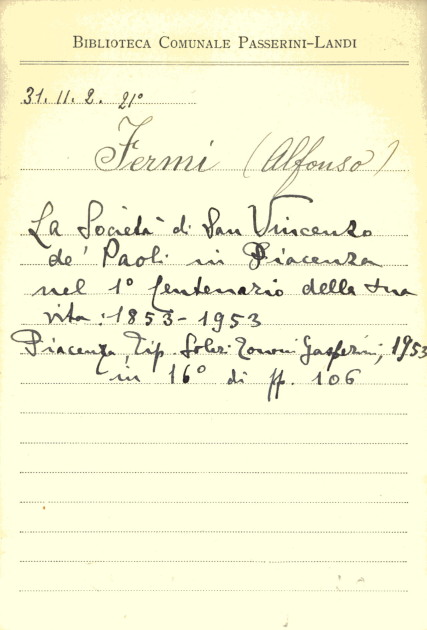 BIBLIOTECA COMUNALE PASSERINI-LANDI
31. 11. 2. 21°
Fermi (Alfonso)
La Società di San Vincenzo
de' Paoli in Piacenza
nel 1° Centenario della sua
vita: 1853-1953
Piacenza, Tip. Gasperini, 1953
in 16° di pp. 106